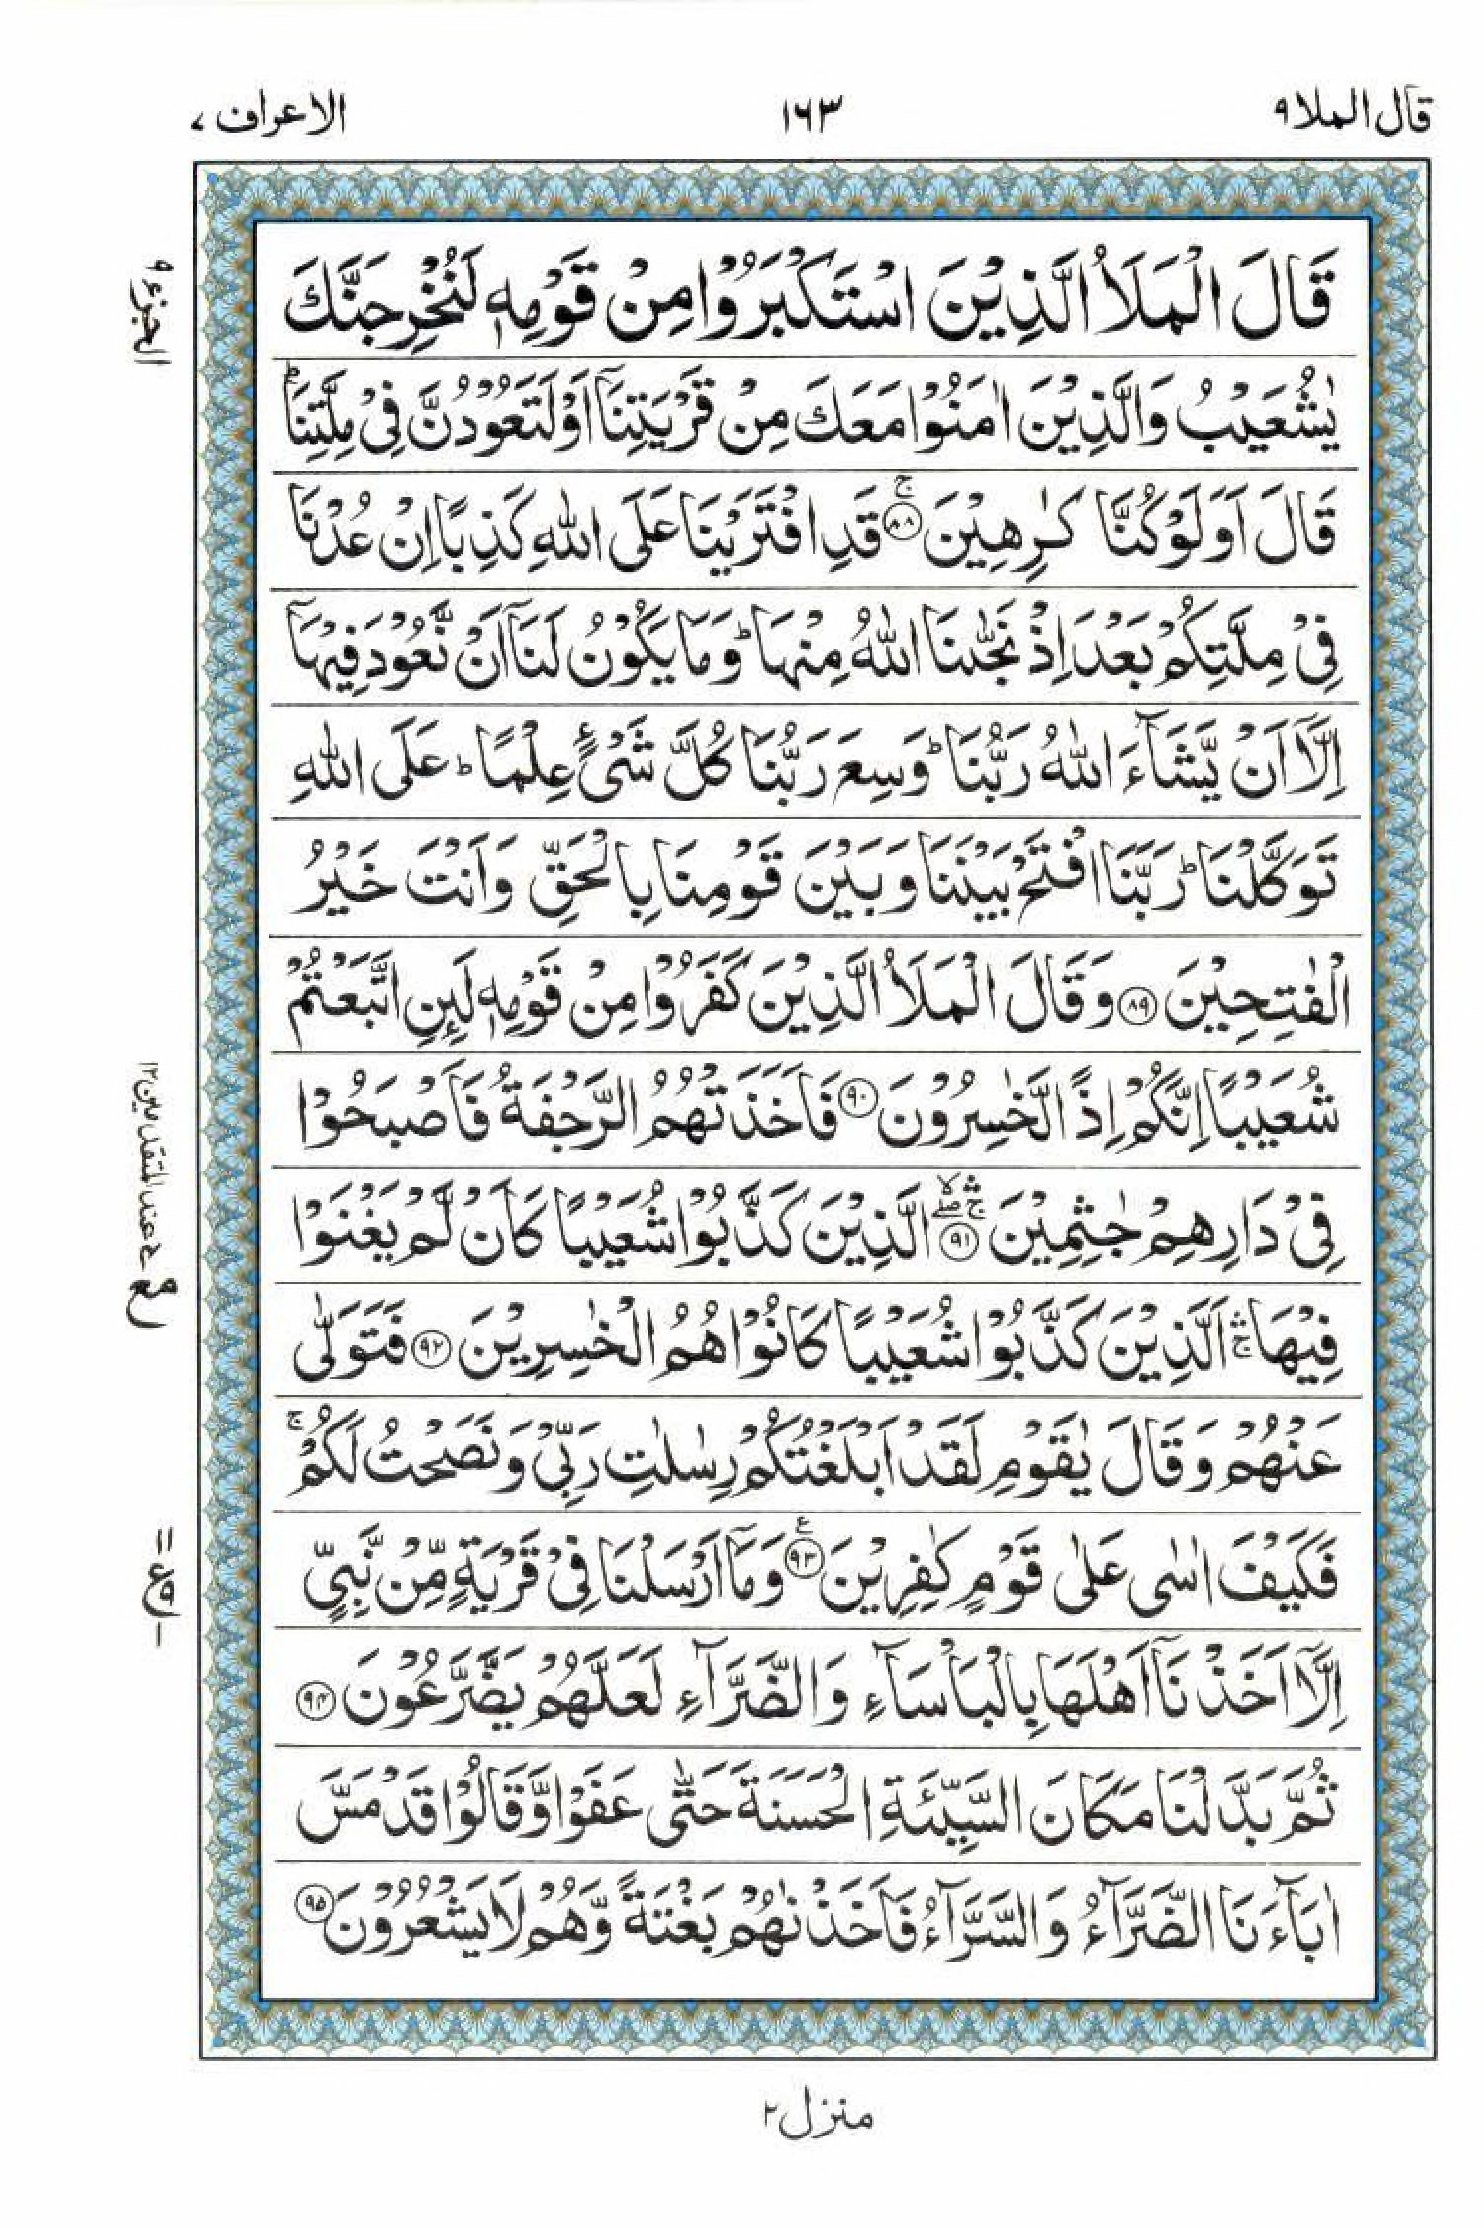 قال الملا ٩
١٦٣
الاعراف ٧
الجزء ٩
قَالَ الْمَلَاُ الَّذِیْنَ اسْتَكْبَرُوْا مِنْ قَوْمِهٖ لَنُخْرِجَنَّكَ
یٰشُعَیْبُ وَالَّذِیْنَ اٰمَنُوْا مَعَكَ مِنْ قَرْیَتِنَاۤ اَوْ لَتَعُوْدُنَّ فِیْ مِلَّتِنَاؕ
قَالَ اَوَلَوْ كُنَّا كٰرِهِیْنَ ۚ‏﴿۸۸﴾ قَدِ افْتَرَیْنَا عَلَی اللّٰهِ كَذِبًا اِنْ عُدْنَا
فِیْ مِلَّتِكُمْ بَعْدَ اِذْ نَجّٰىنَا اللّٰهُ مِنْهَاؕ وَمَا یَكُوْنُ لَنَاۤ اَنْ نَّعُوْدَ فِیْهَاۤ
اِلَّاۤ اَنْ یَّشَآءَ اللّٰهُ رَبُّنَاؕ وَسِعَ رَبُّنَا كُلَّ شَیْءٍ عِلْمًاؕ عَلَی اللّٰهِ
تَوَكَّلْنَاؕ رَبَّنَا افْتَحْ بَیْنَنَا وَبَیْنَ قَوْمِنَا بِالْحَقِّ وَاَنْتَ خَیْرُ
الْفٰتِحِیْنَ ﴿۸۹﴾ وَقَالَ الْمَلَاُ الَّذِیْنَ كَفَرُوْا مِنْ قَوْمِهٖ لَىِٕنِ اتَّبَعْتُمْ
شُعَیْبًا اِنَّكُمْ اِذًا لَّخٰسِرُوْنَ ﴿۹۰﴾ فَاَخَذَتْهُمُ الرَّجْفَةُ فَاَصْبَحُوْا
فِیْ دَارِهِمْ جٰثِمِیْنَ ﴿۹۱﴾ الَّذِیْنَ كَذَّبُوْا شُعَیْبًا كَاَنْ لَّمْ یَغْنَوْا
فِیْهَا ۛۚ اَلَّذِیْنَ كَذَّبُوْا شُعَیْبًا كَانُوْا هُمُ الْخٰسِرِیْنَ ﴿۹۲﴾ فَتَوَلّٰی
عَنْهُمْ وَقَالَ یٰقَوْمِ لَقَدْ اَبْلَغْتُكُمْ رِسٰلٰتِ رَبِّیْ وَنَصَحْتُ لَكُمْ ۚ
فَكَیْفَ اٰسٰی عَلٰی قَوْمٍ كٰفِرِیْنَ ﴿۹۳﴾ع وَمَاۤ اَرْسَلْنَا فِیْ قَرْیَةٍ مِّنْ نَّبِیٍّ
اِلَّاۤ اَخَذْنَاۤ اَهْلَهَا بِالْبَاْسَآءِ وَالضَّرَّآءِ لَعَلَّهُمْ یَضَّرَّعُوْنَ ﴿۹۴﴾
ثُمَّ بَدَّلْنَا مَكَانَ السَّیِّئَةِ الْحَسَنَةَ حَتّٰی عَفَوْا وَّقَالُوْا قَدْ مَسَّ
اٰبَآءَنَا الضَّرَّآءُ وَالسَّرَّآءُ فَاَخَذْنٰهُمْ بَغْتَةً وَّهُمْ لَا یَشْعُرُوْنَ ﴿۹۵﴾
منزل ٢